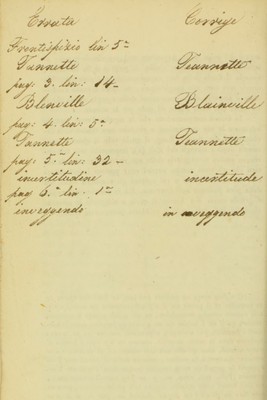 Errata Corrige
Frontispizio lin 5ª
Tannette Jeannette
pag. 3. lin: 14-
Blenville Blainville
pag: 4. lin: 5ª
Tannette Jeannette
pag: 5.ª lin: 32-
incertitudine incertitude
pag 6.ª lin. 1ª
inveggendo in aveggendo